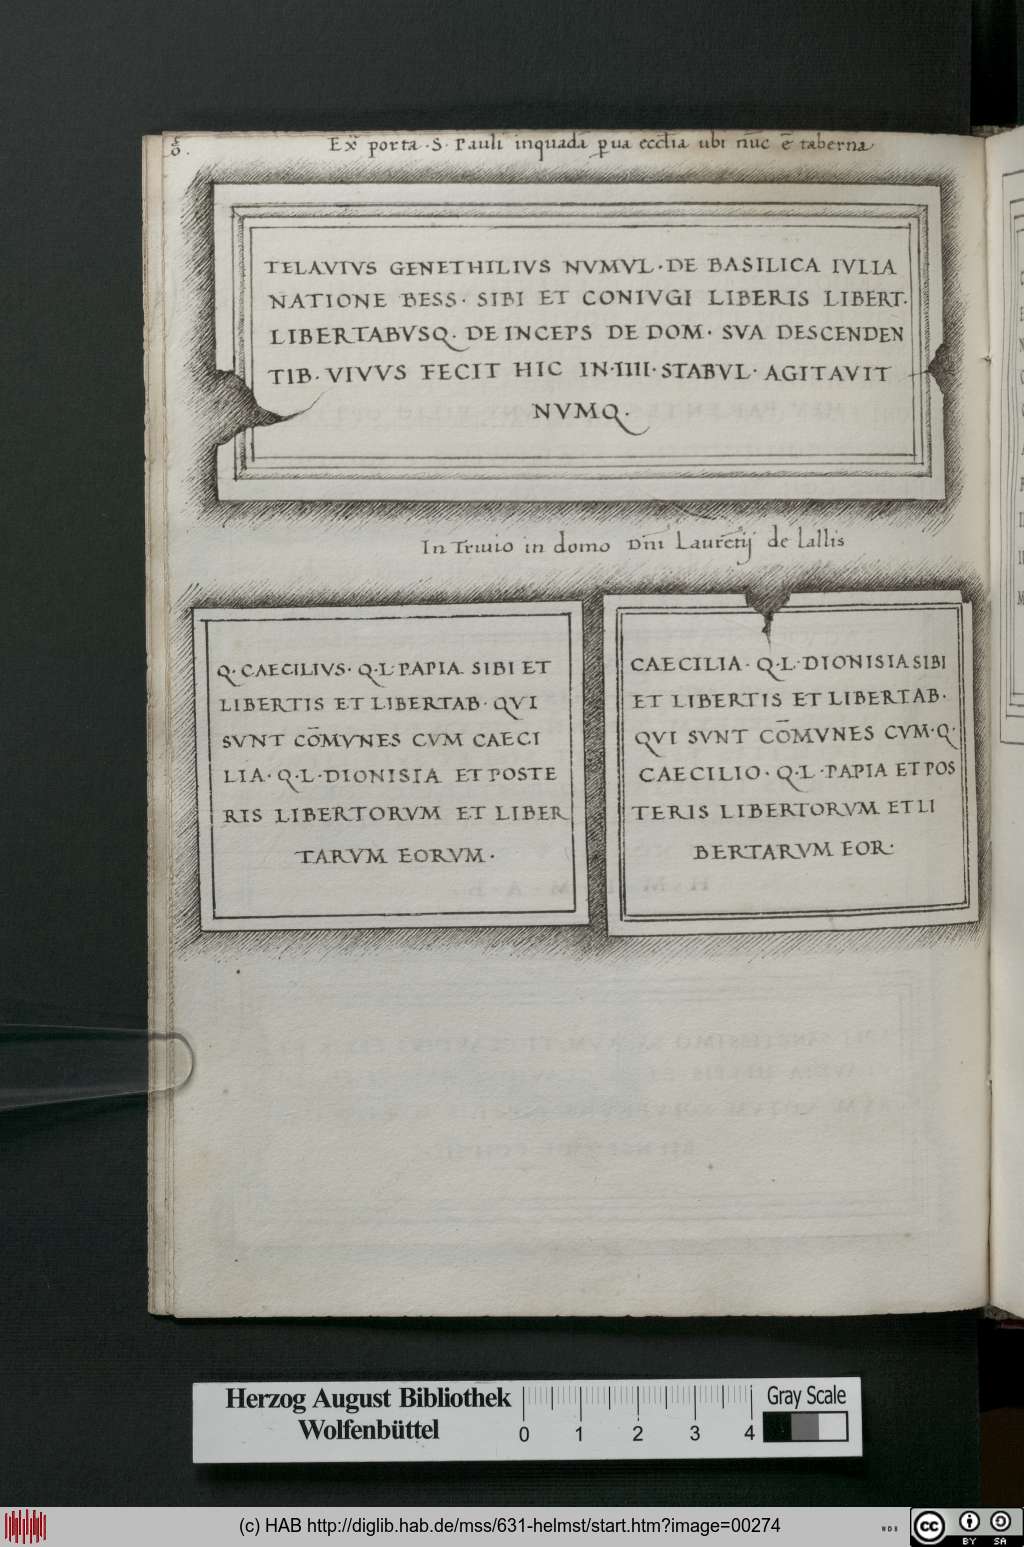 Ex̄ porta · S · Pauli inquadā ꝑua eccl̄ia ubi nūc ē taberna
TELAVIVS GENETHILIVS NVMVL · DE BASILICA IVLIA
NATIONE BESS · SIBI ET CONIVGI LIBERIS LIBERT ·
LIBERTABVSQ · DE INCEPS DE DOM · SVA DESCENDEN
TIB · VIVVS FECIT HIC IN · IIII · STABVL · AGITAVIT
NVMQ ·
In Triuio in domo Dn̄i Laurētij de lallis
Q · CAECILIVS · Q · L · PAPIA SIBI ET
LIBERTIS ET LIBERTAB · QVI
SVNT CŌMVNES CVM CAECI
LIA · Q · L · DIONISIA ET POSTE
RIS LIBERTORVM ET LIBER
TARVM EORVM ·
CAECILIA · Q · L · DIONISIA SIBI
ET LIBERTIS ET LIBERTAB ·
QVI SVNT CŌMVNES CVM · Q ·
CAECILIO · Q · L · PAPIA ET POS
TERIS LIBERTORVM ET LI
BERTARVM EOR ·
Herzog August Bibliothek
Wolfenbüttel
0 1 2 3 4
Gray Scale
(c) HAB http://diglib.hab.de/mss/631-helmst/start.htm?image=00274
WDB
cc BY SA